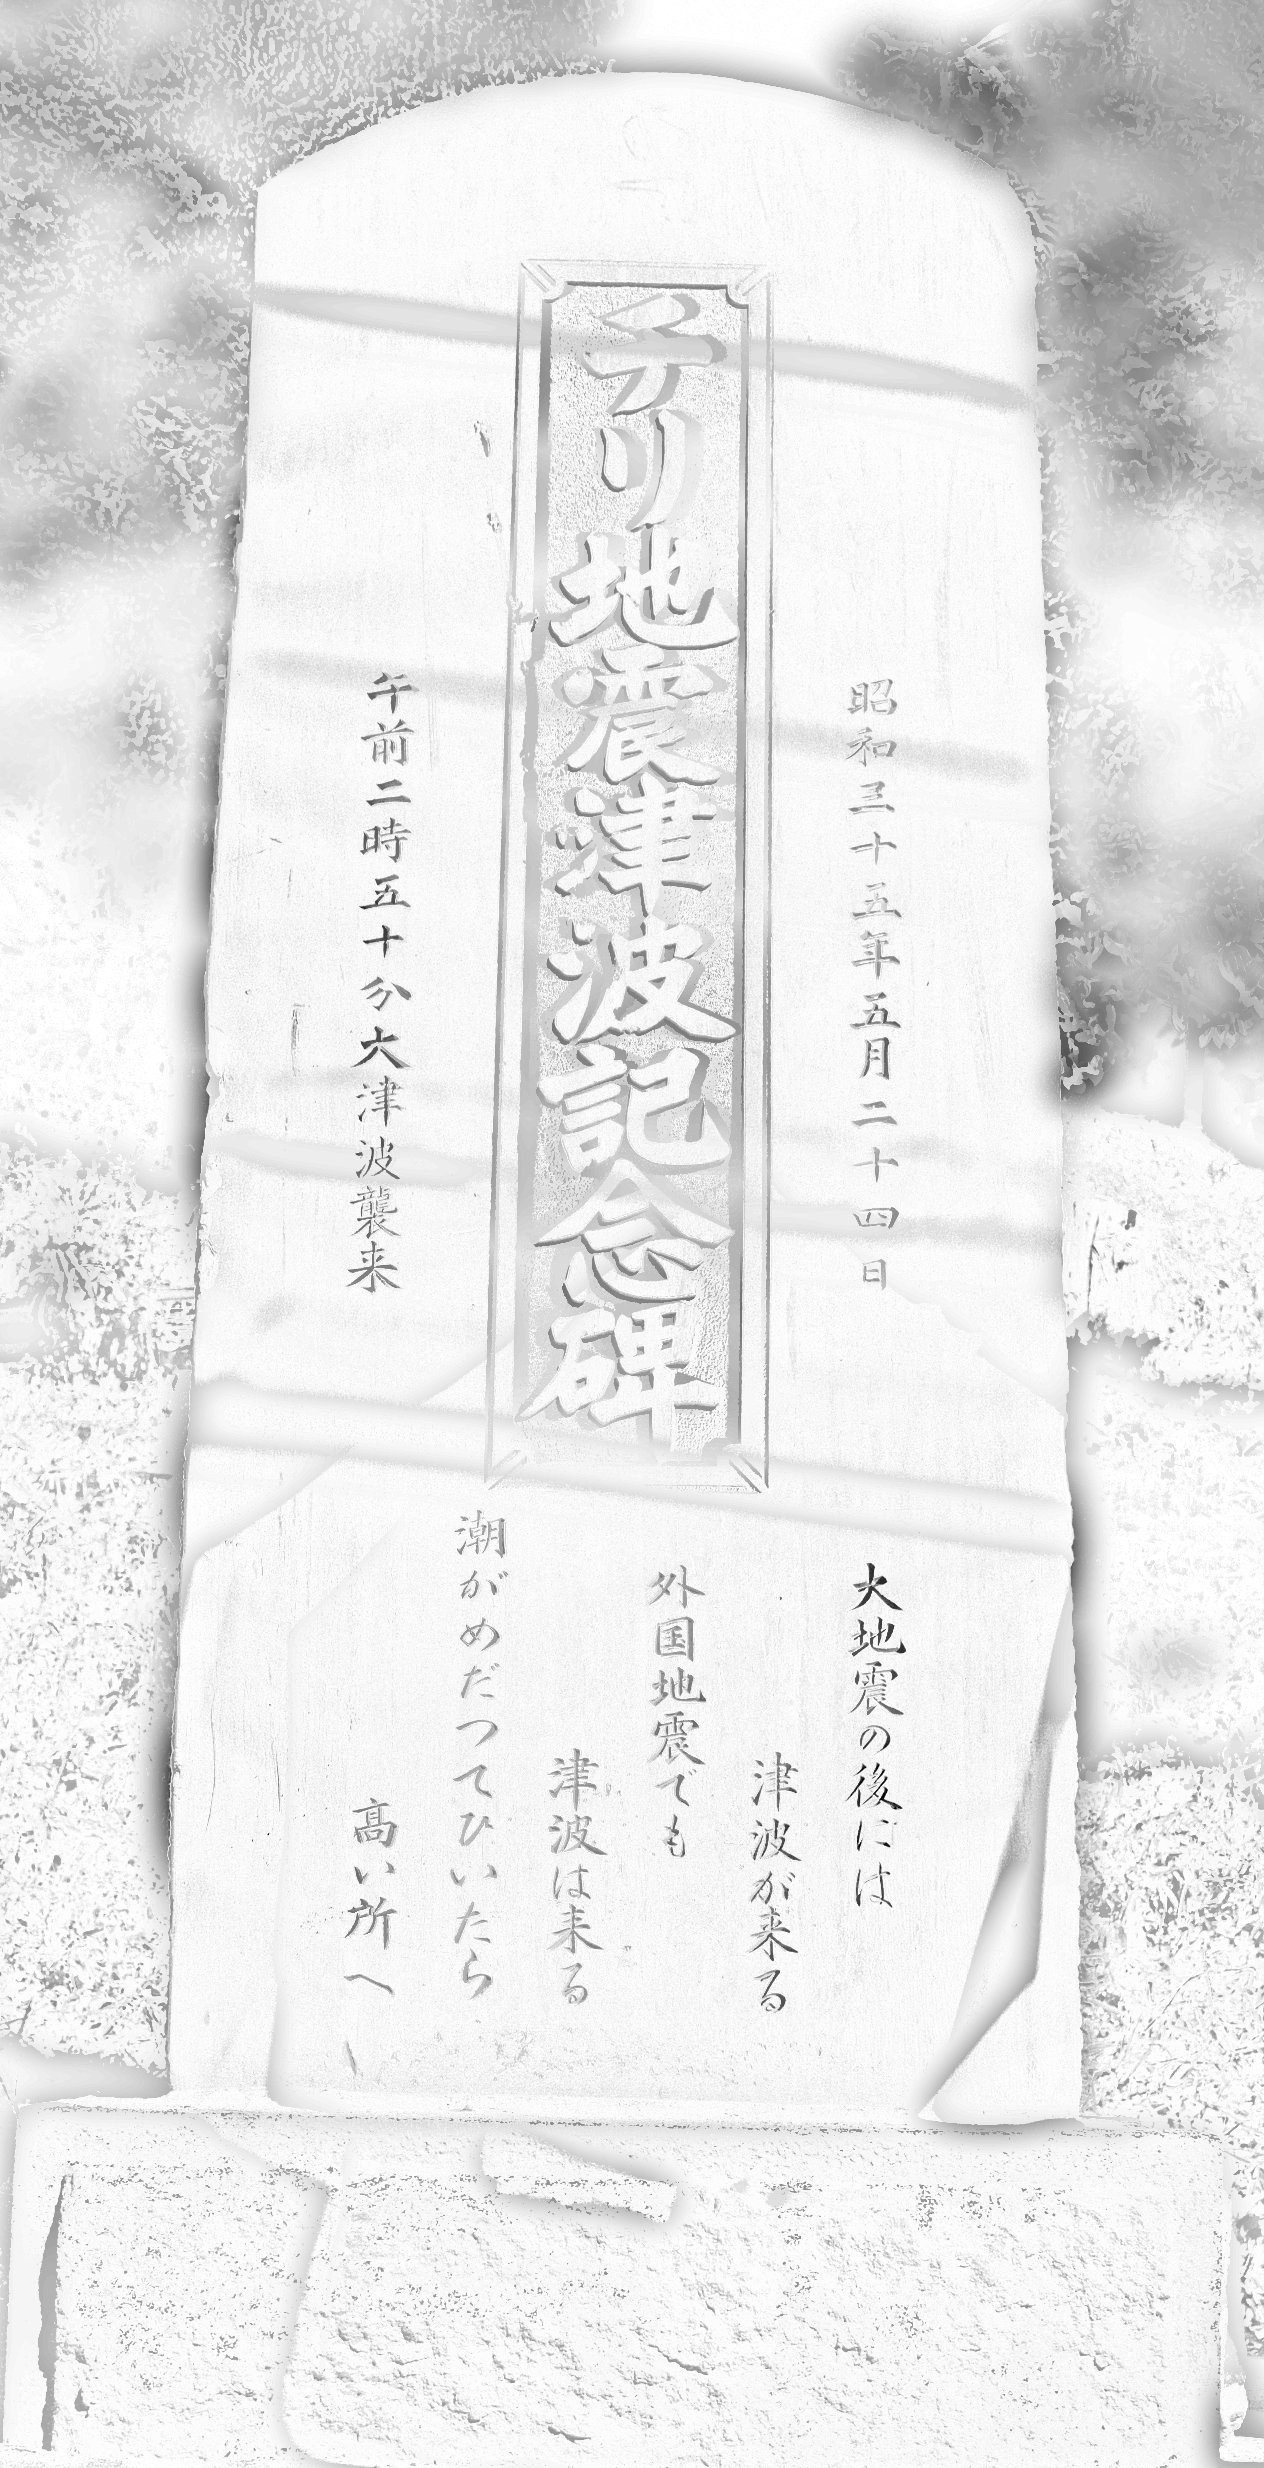 昭和三十五年五月二十四日
チリ地震津波記念碑
午前二時五十分大津波襲来
大地震の後には
津波が来る
外国地震でも
津波は来る
潮がめだつてひいたら
高い所へ